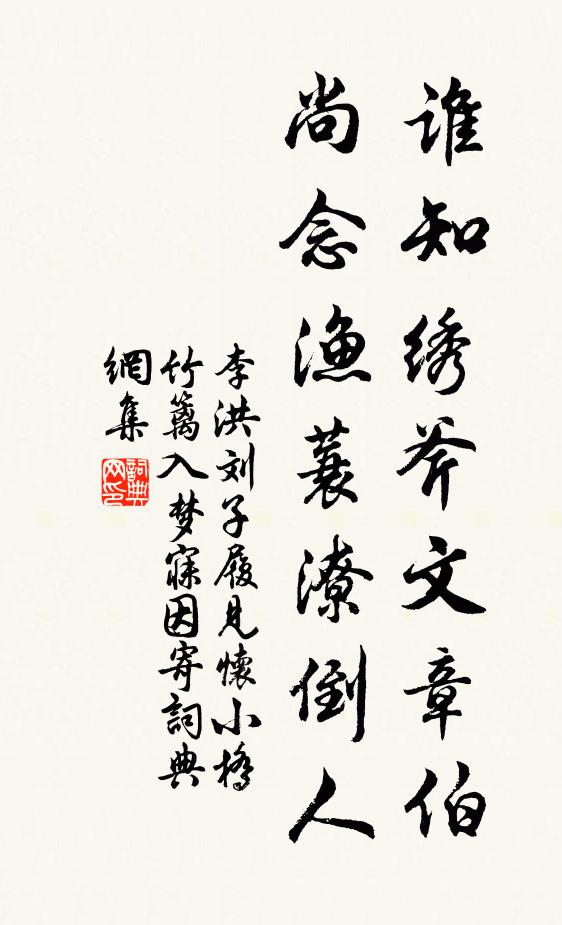 谁知绣斧文章伯
尚念渔蓑潦倒人
李洪刘子履见怀小桥
竹篱入梦寐因寄词典
網集
詞典
网印